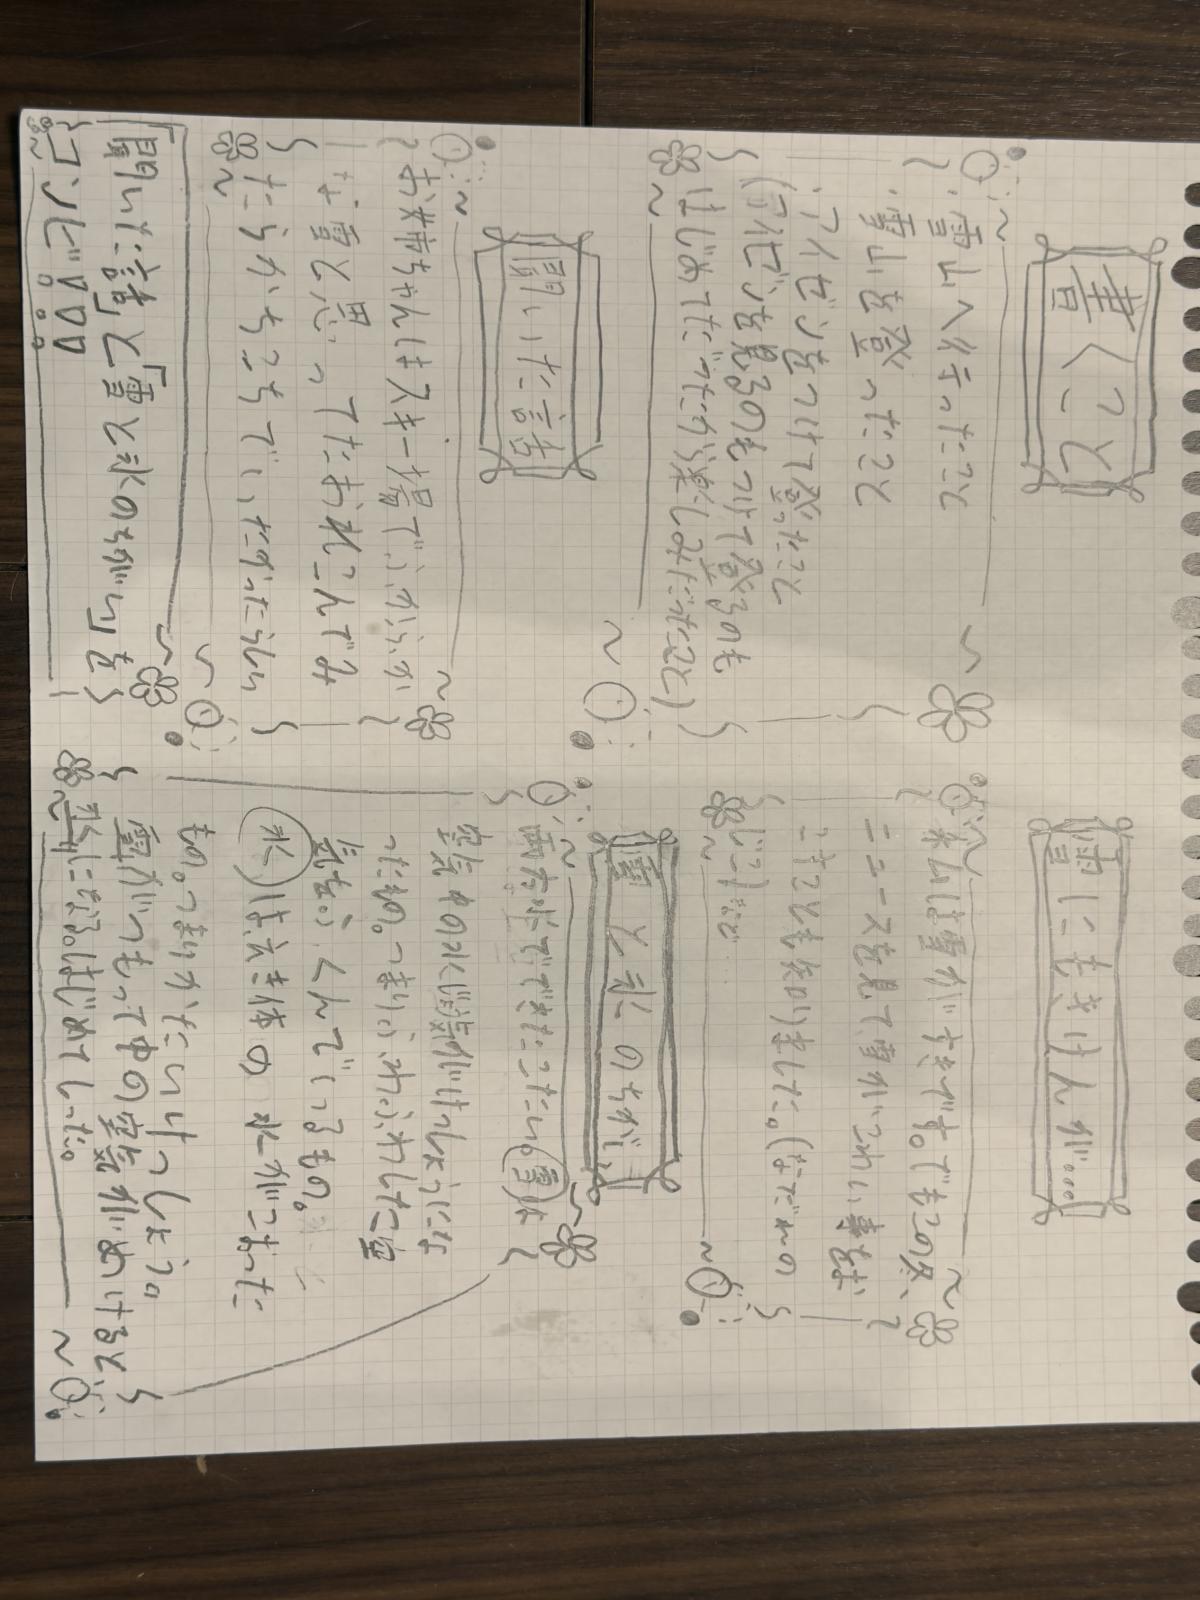 書くこと
・雪山へ行ったこと
・雪山を登ったこと
・アイゼンをつけて登ったこと
(アイゼンを見るのもつけて登るのも
はじめてだったが楽しみだったこと)
聞いた話
お母ちゃんはスキー場でふかふか
な雪と思ってたおれこんでみ
たらかちこちでいたかったらしい
「聞いた話」と「雪と氷のちがい」を
コンビ
雪にもきけんが…。
私は雪がすきです。でもこの次、
ニュースを見て雪がこわい事故
こすことも知りました。(なだれの
じこなど
雪と氷のちがい
両方水でできたつめたい。雪は
空気中の水じょう気がけっしょうにな
ったもの。つまりふわふわした空
気をふくんでいるもの。
氷は え き体の水がこおった
もの。つまりかたいけっしょう。
雪がつもって中の空気がぬけると
氷になる。はじめてしった。